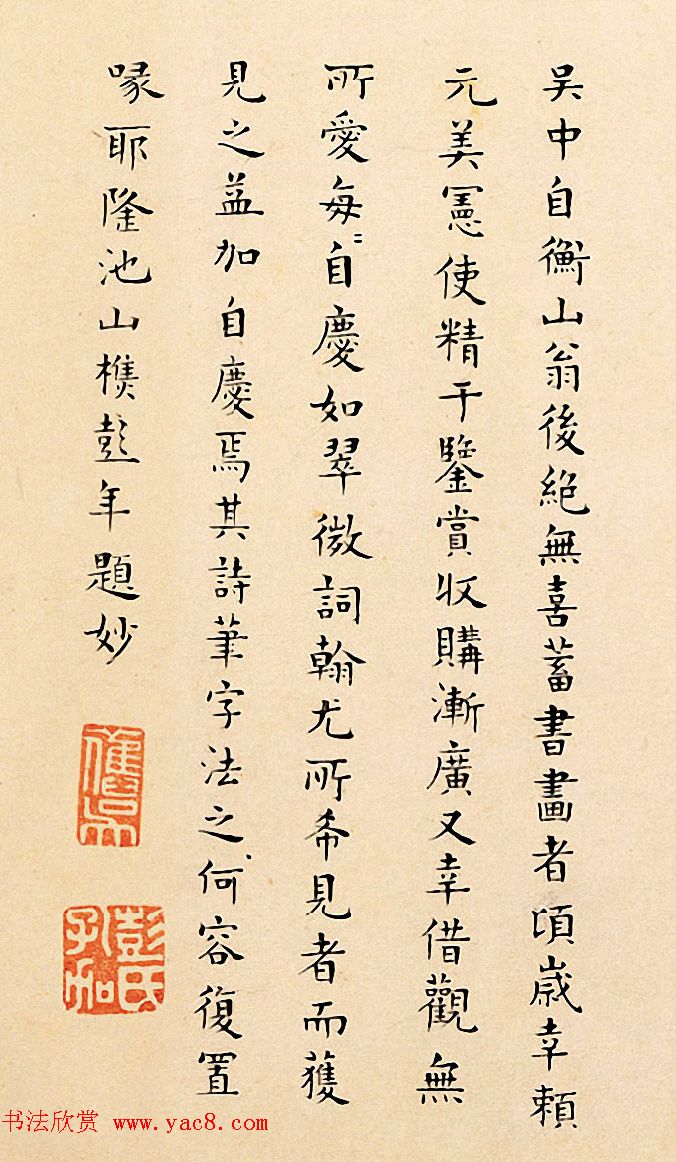 吳中自衡山翁後絕無喜蓄書畫者頃歲幸賴
元美憲使精于鑒賞收購漸廣又幸借觀無
所愛每〻自慶如翠微詞翰尤所希見者而獲
見之益加自慶焉其詩筆字法之妙何容復置
喙耶隆池山樵彭年題
妙
彭氏孔加
书法欣赏 www.yac8.com